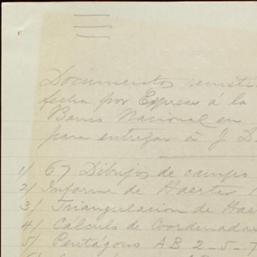 Documentos remiti
fecha por Expreso á la
Barra Nacional en
para entregar á J. D.
1/ 67 Dibujos de campo
2/ Informe de Haerter
3/ Triangulacion de Hae
4/ Calculo de Coordenadas
5/ Pentagono AB 2-5-7